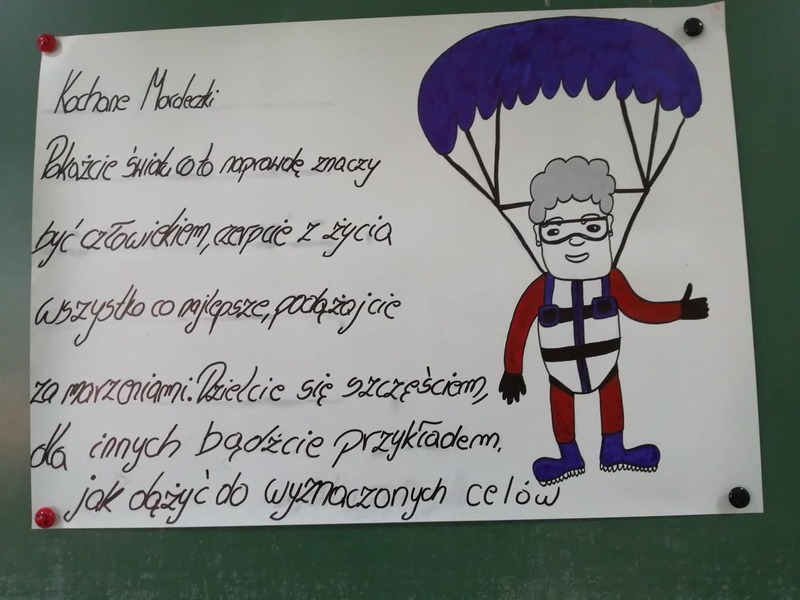 Kochane Mordeczki
Pokażcie świat, co to naprawdę znaczy
być człowiekiem, czerpcie z życia
wszystko co najlepsze, podążajcie
za marzeniami. Dzielcie się szczęściem,
dla innych bądźcie przykładem,
jak dążyć do wyznaczonych celów